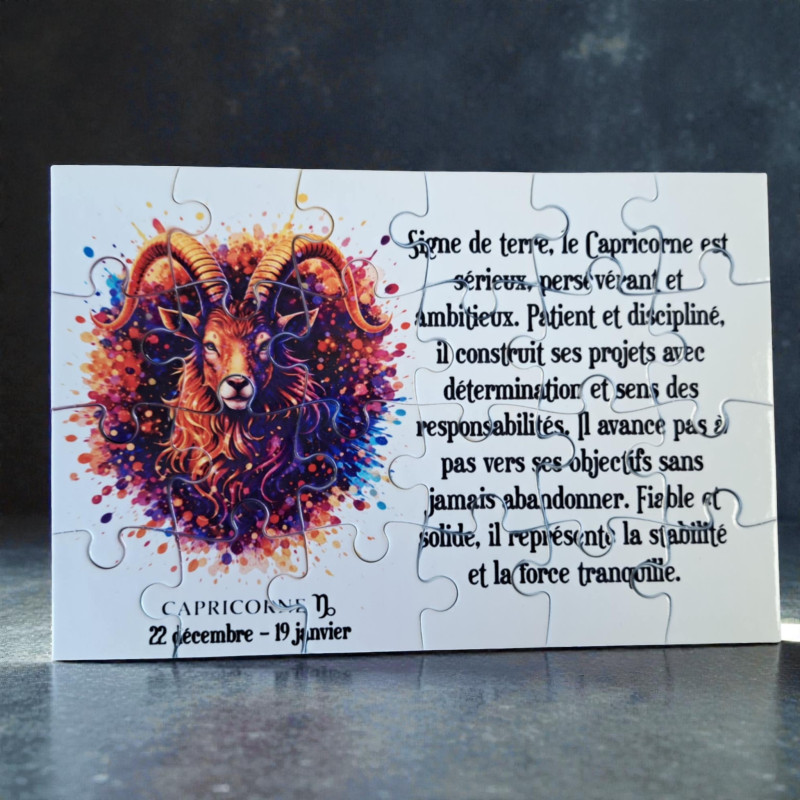 Signe de terre, le Capricorne est
sérieux, persévérant et
ambitieux. Patient et discipliné,
il construit ses projets avec
détermination et sens des
responsabilités. Il avance pas à
pas vers ses objectifs sans
jamais abandonner. Fiable et
solide, il représente la stabilité
et la force tranquille.
CAPRICORNE ♑
22 décembre - 19 janvier